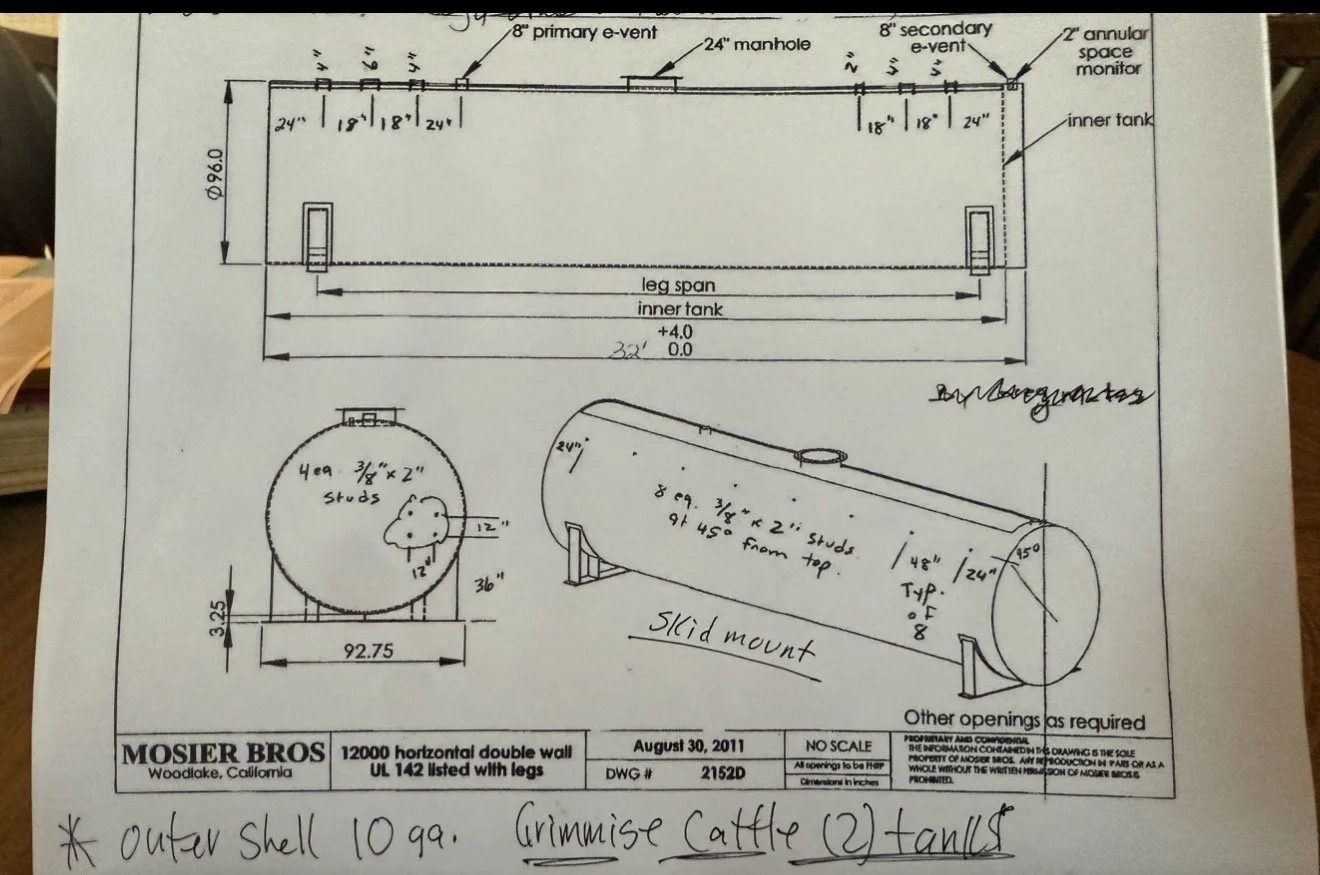 8" primary e-vent
24" manhole
8" secondary
e-vent
2" annular
space
monitor
4"
6"
4"
2"
4"
4"
24"
18"
18"
24"
18"
18"
24"
inner tank
Ø96.0
leg span
inner tank
+4.0
32' 0.0
4 ea. 3/8" x 2"
studs
12"
12"
36"
3.25
92.75
24"
8 eq. 3/8" x 2" studs
at 45° from top.
48"
Typ.
of
8
24"
45°
Skid mount
Other openings as required
MOSIER BROS
Woodlake, California
12000 horizontal double wall
UL 142 listed with legs
August 30, 2011
DWG # 2152D
NO SCALE
All openings to be FNPT
Dimensions in inches
PROPRIETARY AND CONFIDENTIAL
THE INFORMATION CONTAINED IN THIS DRAWING IS THE SOLE
PROPERTY OF MOSIER BROS. ANY REPRODUCTION IN PART OR AS A
WHOLE WITHOUT THE WRITTEN PERMISSION OF MOSIER BROS IS
PROHIBITED.
* outer shell 10 ga. Grimmise Cattle (2) tanks